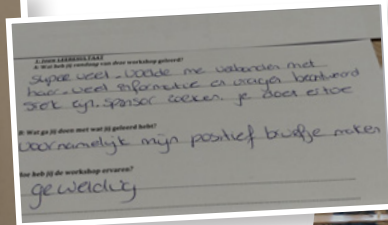 A: Wat heb jij vandaag van deze workshop geleerd?
Super veel. voelde me verbonden met
haar. veel informatie en vragen beantwoord
sterk zijn. sponsor zoeken. je doet ertoe
B: Wat ga jij doen met wat jij geleerd hebt?
voornamelijk mijn positief briefje maken
Hoe heb jij de workshop ervaren?
geweldig